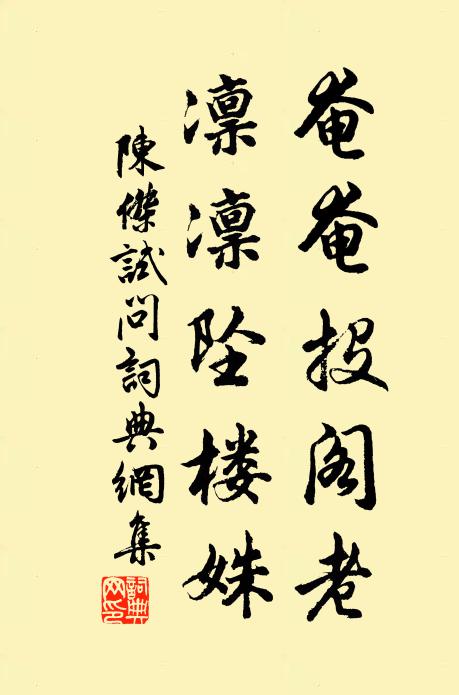 奄奄投阁老
凛凛坠楼姝
陳傑試问詞典網集
詞典网印